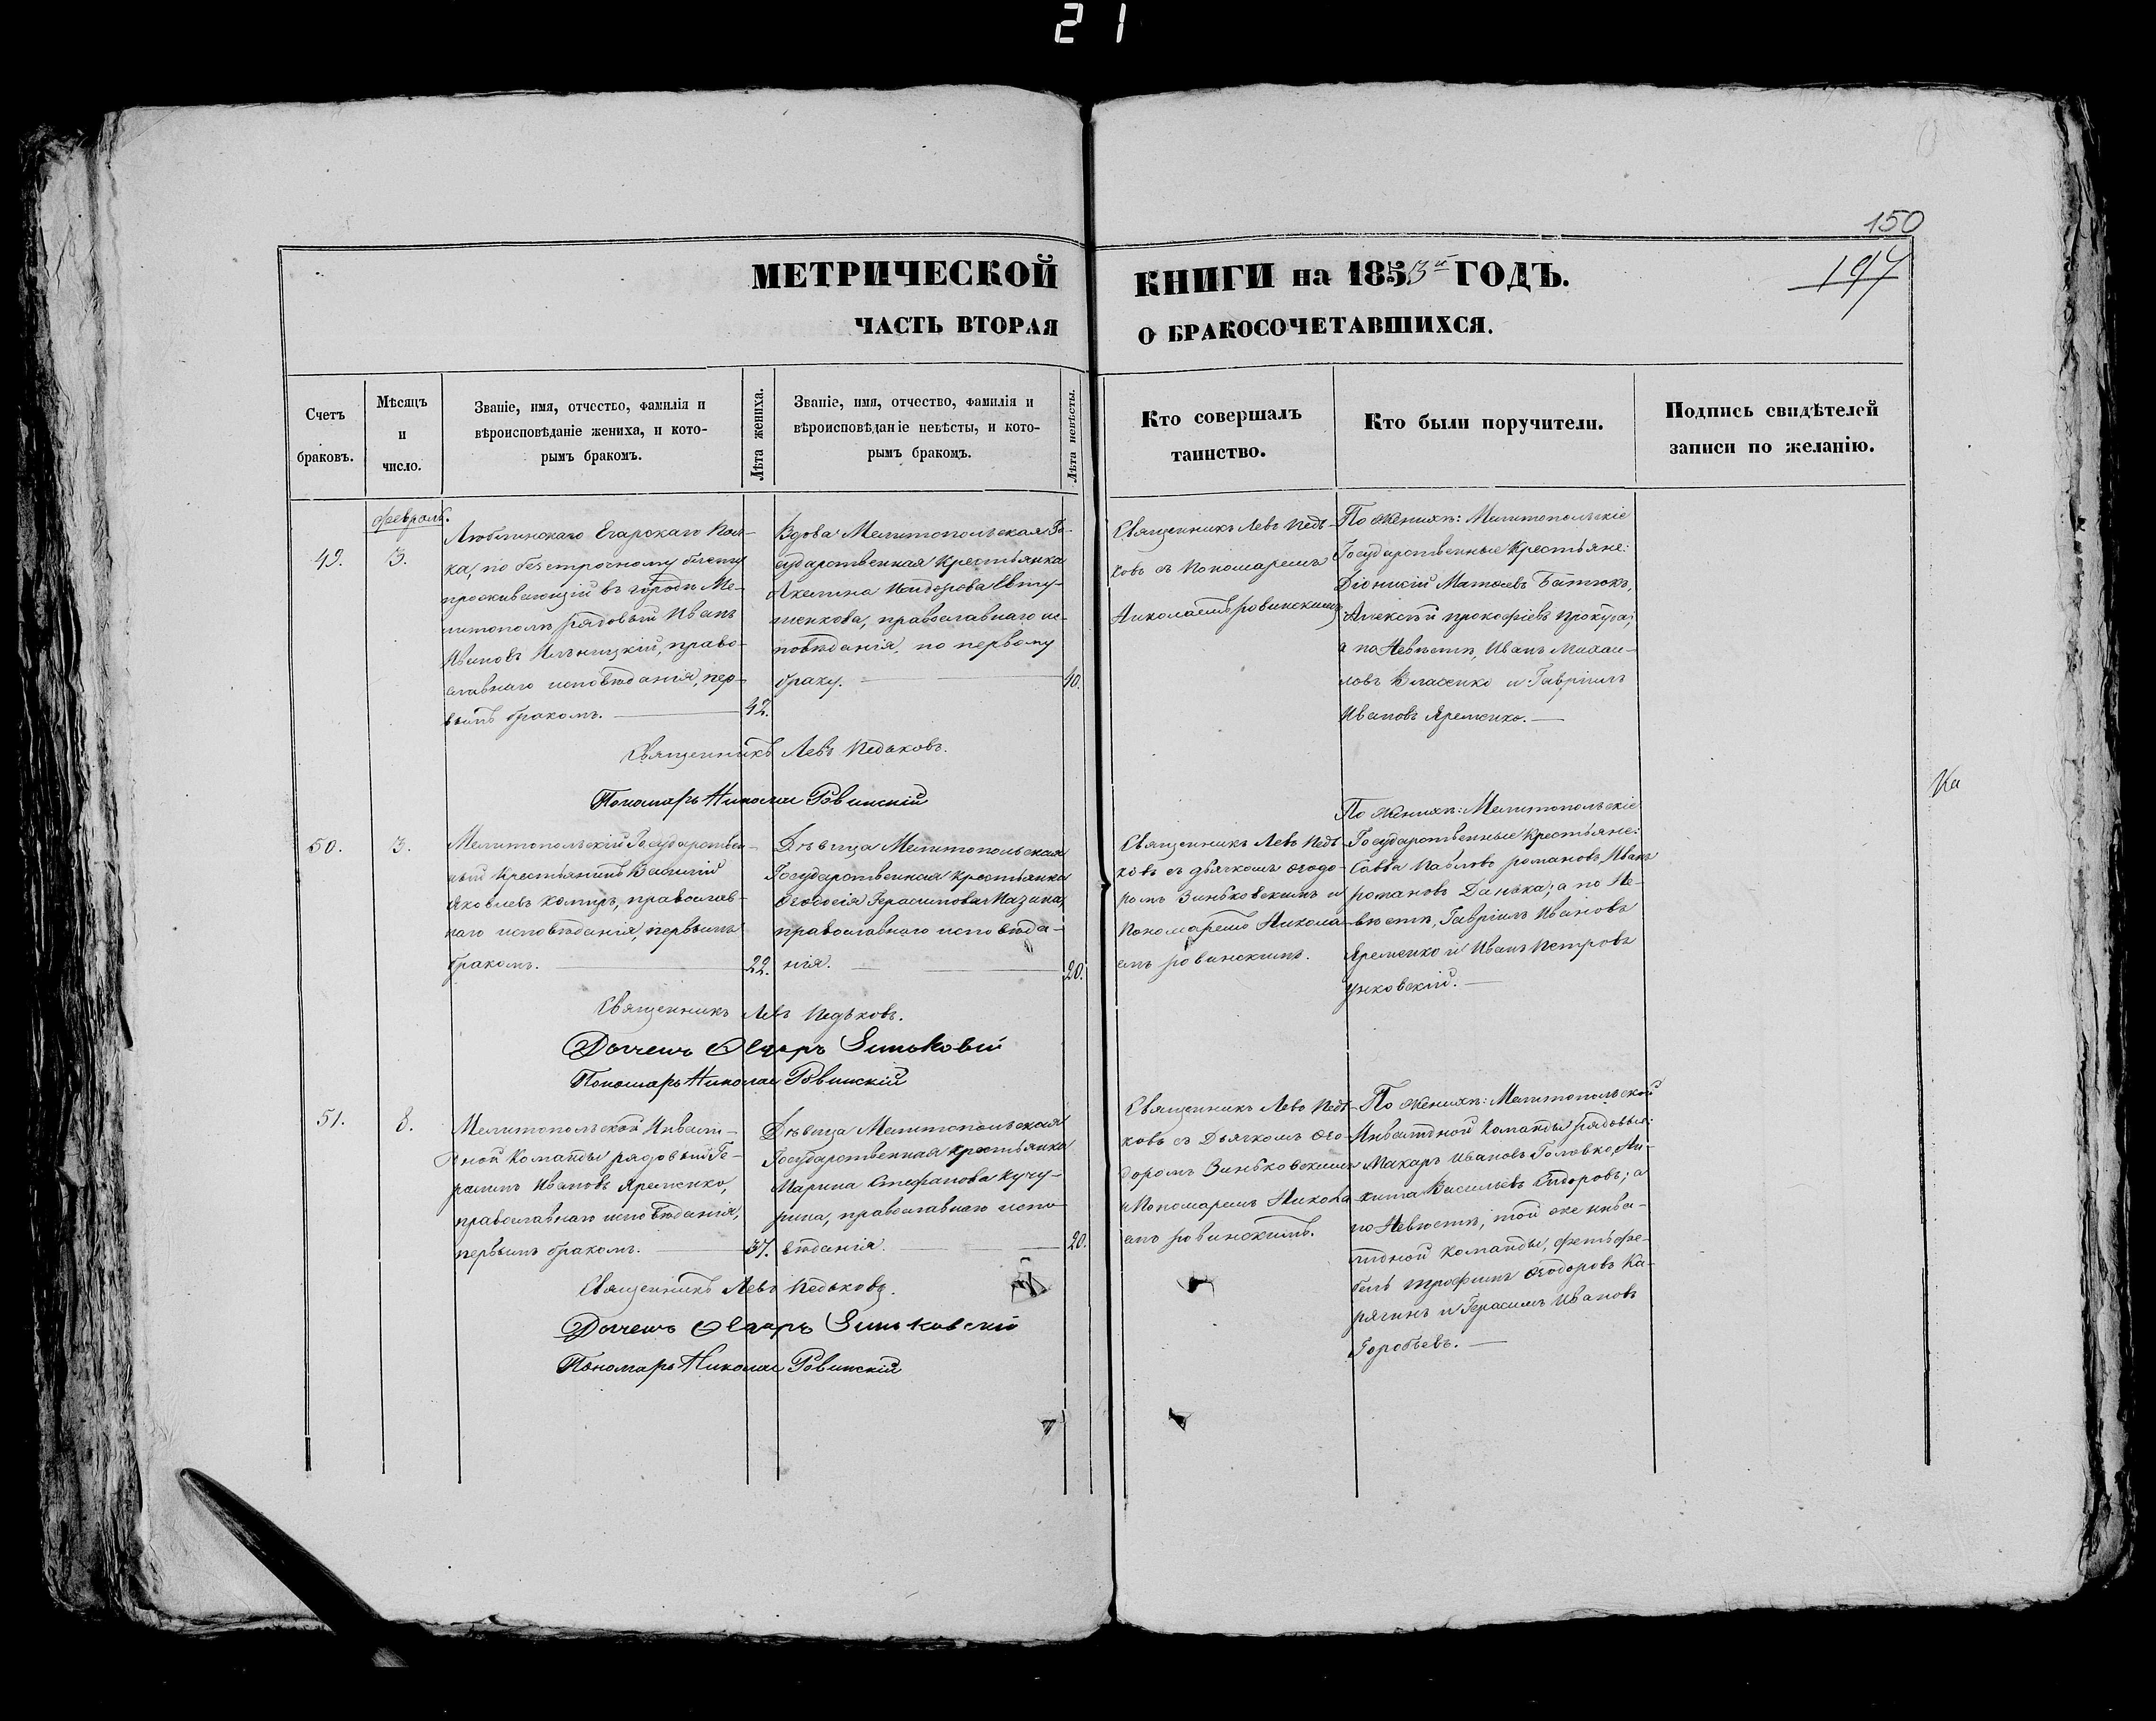 21
150
197
МЕТРИЧЕСКОЙ КНИГИ на 1853й ГОДЪ.
ЧАСТЬ ВТОРАЯ О БРАКОСОЧЕТАВШИХСЯ.
Счетъ браковъ.
Мѣсяцъ и число.
Званіе, имя, отчество, фамилія и
вѣроисповѣданіе жениха, и кото-
рымъ бракомъ.
Лѣта жениха.
Званіе, имя, отчество, фамилія и
вѣроисповѣданіе невѣсты, и кото-
рымъ бракомъ.
Лѣта невѣсты.
Кто совершалъ
таинство.
Кто были поручители.
Подпись свидѣтелей
записи по желанію.
февраль.
49.
3.
Люблинскаго Егарскаго Пол-
ка, по безсрочному билету
проживающій въ городѣ Ме-
литополѣ рядовый Иванъ
Ивановъ Ильницкій, право-
славнаго исповѣданія, пер-
вымъ бракомъ.
42.
Вдова Мелитопольская Го-
сударственная Крестьянка
Акелина Исидорова Евту-
шенкова, православнаго ис-
повѣданія, по первому
браку.
40.
Священникъ Левъ Педь-
ковъ съ Пономаремъ
Николаемъ Ровинскимъ
По Женихѣ: Мелитопольскіе
Государственные Крестьяне:
Діонисій Матѳеевъ Батюкъ,
Алексѣй Прокофіевъ Прокура;
а по Невѣстѣ, Иванъ Михаи-
ловъ Власенко и Гавріилъ
Ивановъ Яременко.
Священникъ Левъ Педьковъ.
Пономарь Николай Ровинскій
На
50.
3.
Мелитопольскій Государствен-
ный Крестьянинъ Василій
Яковлевъ Комиръ, православ-
наго исповѣданія, первымъ
бракомъ.
22.
Дѣвица Мелитопольская
Государственная Крестьянка
Ѳеодосія Герасимова Мазина
православнаго исповѣда-
нія.
20.
Священникъ Левъ Педь-
ковъ съ дьячкомъ Ѳеодо-
ромъ Зиньковскимъ и
Пономаремъ Никола-
емъ Ровинскимъ.
По Женихѣ: Мелитопольскіе
Государственные Крестьяне:
Савва Павловъ Романовъ, Иванъ
Романовъ Данька; а по Не-
вѣстѣ, Гавріилъ Ивановъ
Яременко и Иванъ Петровъ
Священникъ Левъ Педьковъ.
Дьячекъ Ѳеодоръ Зиньковскій
Пономарь Николай Ровинскій
51.
8.
Мелитопольской Инвали-
дной Команды рядовый Ге-
расимъ Ивановъ Яременко,
православнаго исповѣданія,
первымъ бракомъ.
37.
Дѣвица Мелитопольская
Государственная Крестьянка
Марина Стефанова Кучу-
рина, православнаго испо-
вѣданія.
20.
Священникъ Левъ Педь-
ковъ съ Дьячкомъ Ѳео-
доромъ Зиньковскимъ
и Пономаремъ Никола-
емъ Ровинскимъ.
По Женихѣ: Мелитопольской
Инвалидной Команды рядовые:
Макаръ Ивановъ Головко, Ни-
кита Васильевъ Сидоровъ; а
по Невѣстѣ, той же инва-
лидной Команды, фельдфе-
бель Трофимъ Ѳеодоровъ Ка-
рягинъ и Герасимъ Ивановъ
Горобьевъ.
Священникъ Левъ Педьковъ.
Дьячекъ Ѳеодоръ Зиньковскій
Пономарь Николай Ровинскій